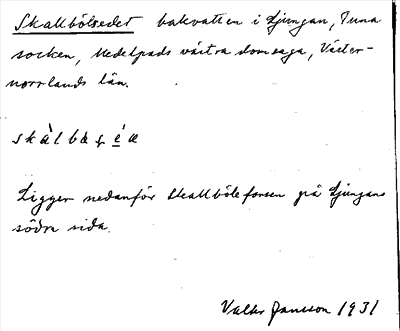 Skallbölsedet bakvatten i Ljungan, Tuna
socken, Medelpads västra domsaga, Väster-
norrlands län.
Ligger nedanför Skallböleforsen på Ljungans
södra sida.
Valter Jansson 1931